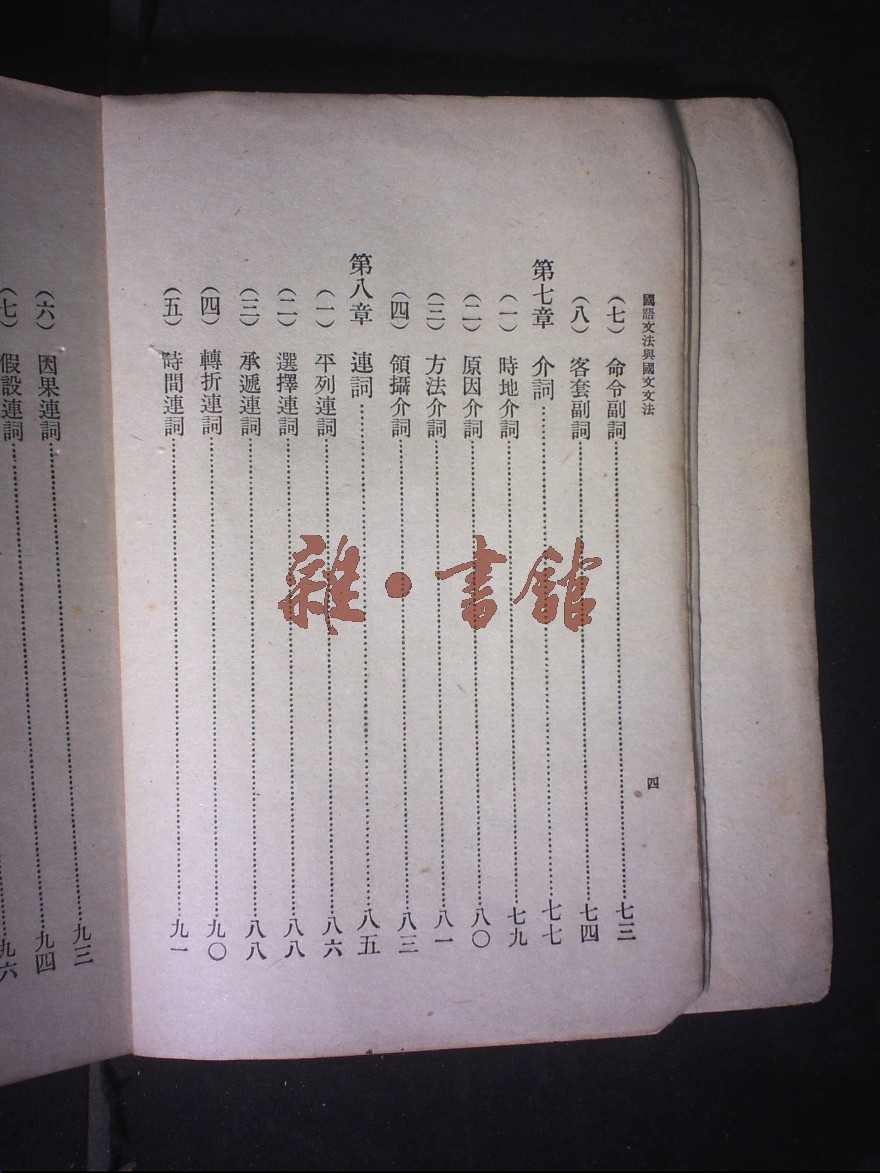 國語文法與國文文法
四
(七) 命令副詞……七三
(八) 客套副詞……七四
第七章 介詞……七七
(一) 時地介詞……七九
(二) 原因介詞……八〇
(三) 方法介詞……八一
(四) 領攝介詞……八三
第八章 連詞……八五
(一) 平列連詞……八六
(二) 選擇連詞……八八
(三) 承遞連詞……八八
(四) 轉折連詞……九〇
(五) 時間連詞……九一
(六) 因果連詞……九三
(七) 假設連詞……九四
九六
雜·書館